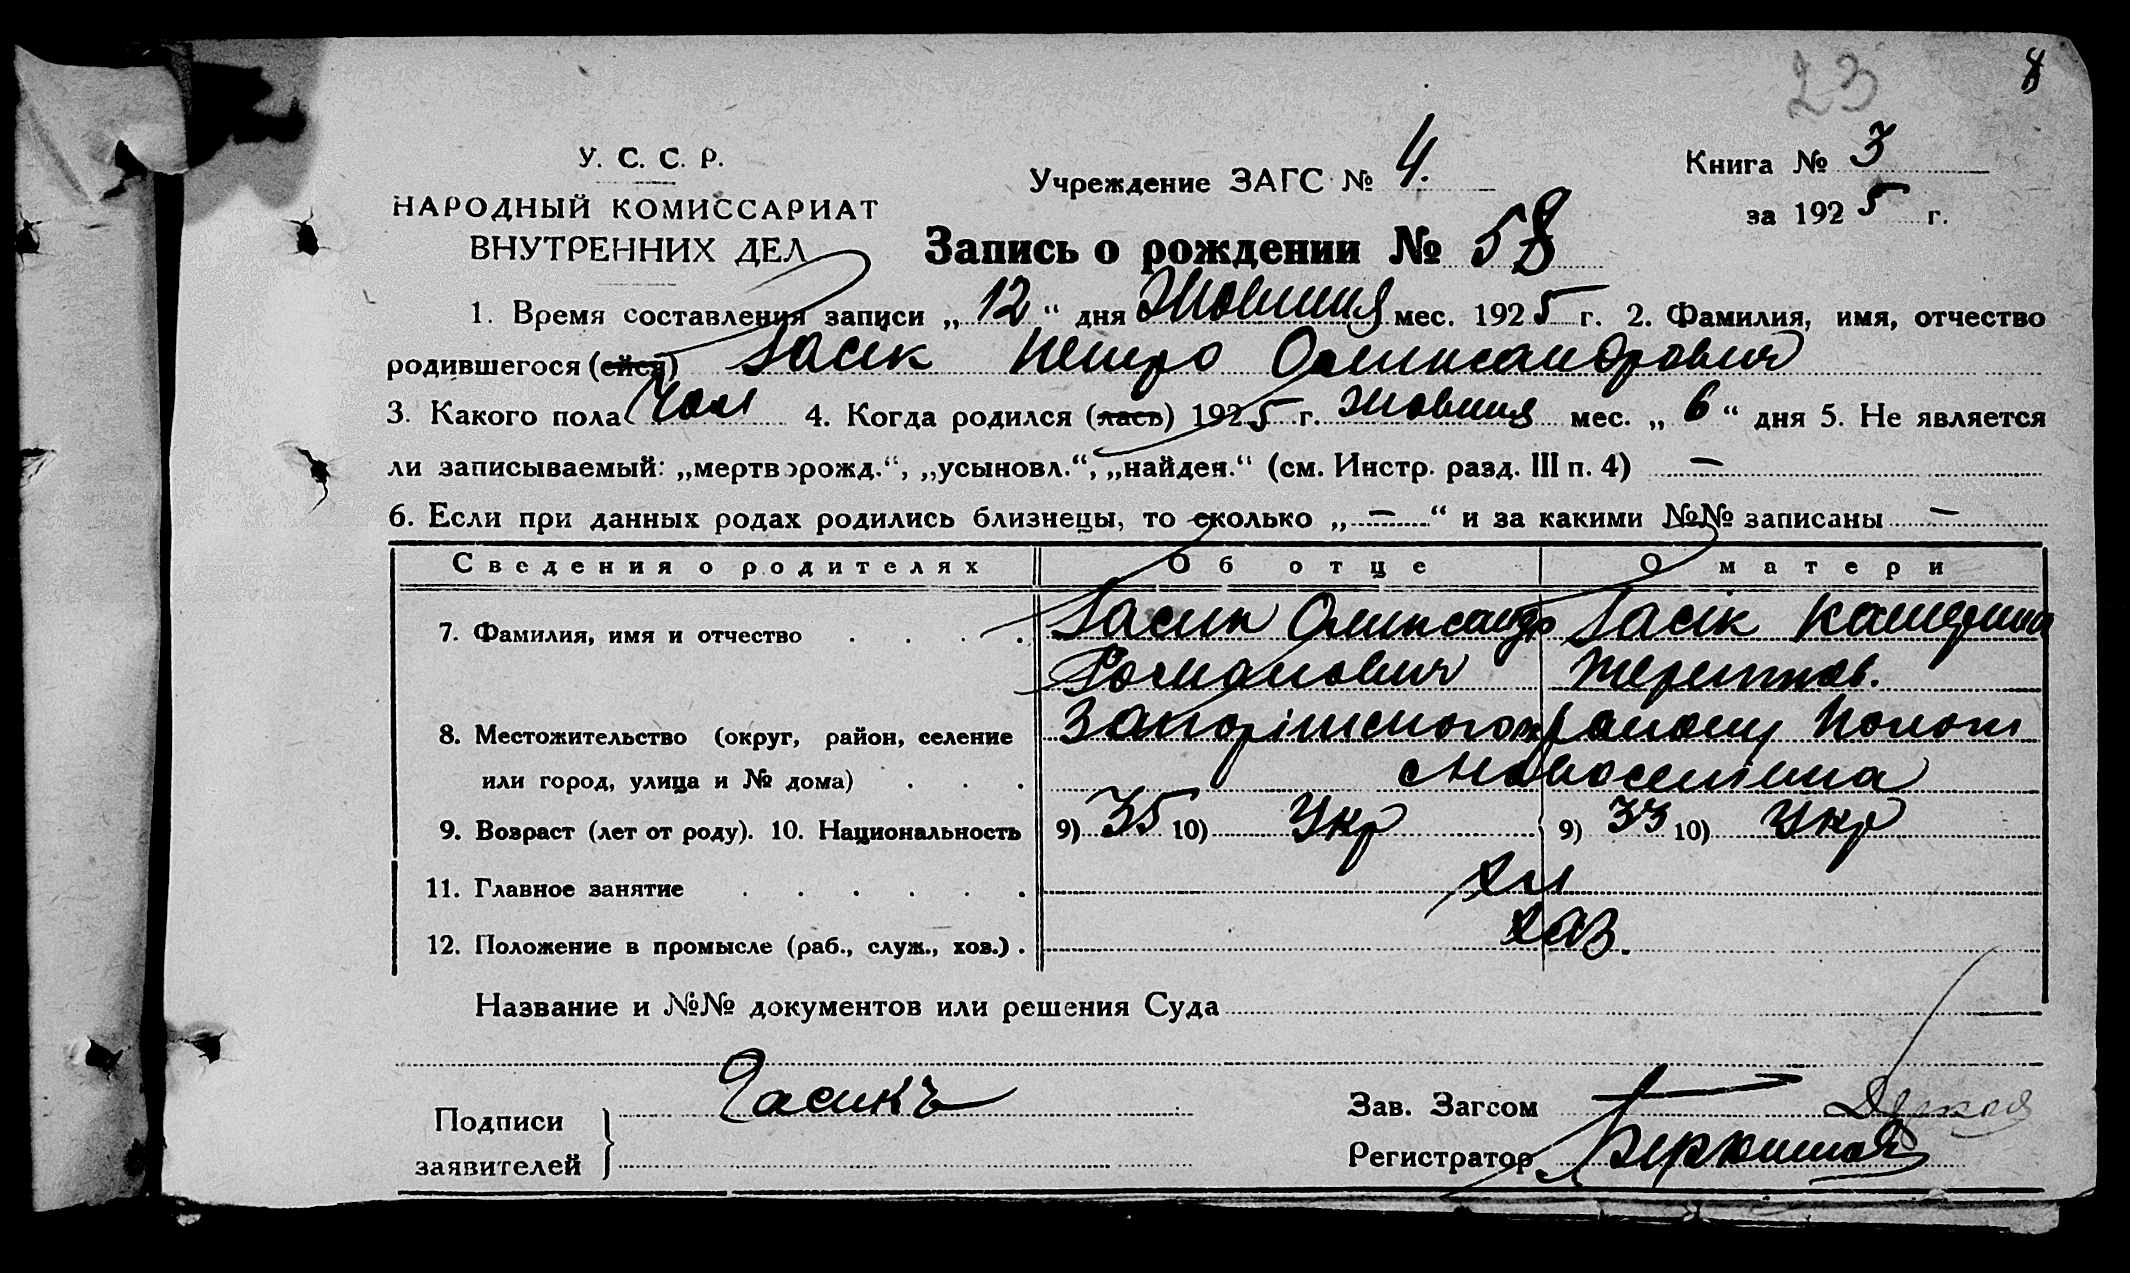 23 8
У. С. С. Р.
НАРОДНЫЙ КОМИССАРИАТ
ВНУТРЕННИХ ДЕЛ
Учреждение ЗАГС № 4.
Книга № 3
за 1925 г.
Запись о рождении № 58
1. Время составления записи „12“ дня Жовтня мес. 1925 г. 2. Фамилия, имя, отчество
родившегося (ейся) Гасик Петро Олександрович
3. Какого пола Чол 4. Когда родился (лась) 1925 г. Жовтня мес. „6“ дня 5. Не является
ли записываемый: „мертворожд.“, „усыновл.“, „найден.“ (см. Инстр. разд. III п. 4) —
6. Если при данных родах родились близнецы, то сколько „—“ и за какими №№ записаны —
Сведения о родителях Об отце О матери
7. Фамилия, имя и отчество Гасик Олександр Гасик Катерина
Романович
8. Местожительство (округ, район, селение Запоріжського
или город, улица и № дома) с Новоселівка
9. Возраст (лет от роду). 10. Национальность 9) 35 10) Укр 9) 33 10) Укр
11. Главное занятие хл
12. Положение в промысле (раб., служ., хоз.) хаз.
Название и №№ документов или решения Суда
Подписи
заявителей
Гасикъ
Зав. Загсом
Регистратор